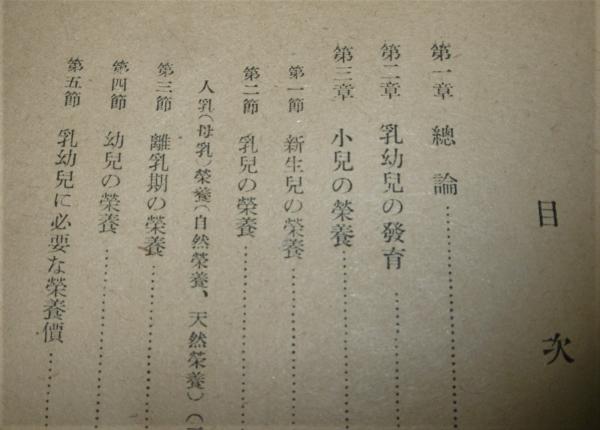 目次
第一章 總論
第二章 乳幼兒の發育
第三章 小兒の榮養
第一節 新生兒の榮養
第二節 乳兒の榮養
人乳(母乳)榮養(自然榮養、天然榮養)(
第三節 離乳期の榮養
第四節 幼兒の榮養
第五節 乳幼兒に必要な榮養價